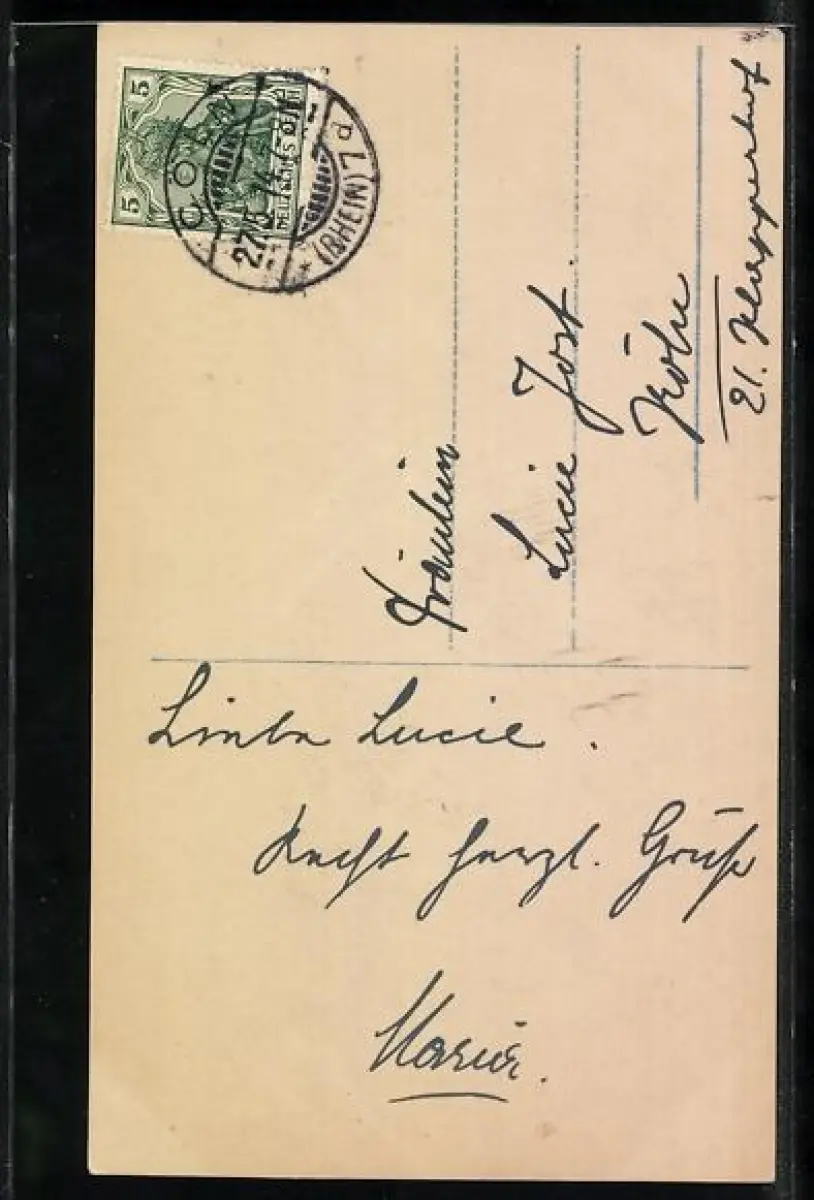 5 5
DEUTSCHES REICH
CÖLN
27.5.14
(RHEIN) 7 d
Fräulein
Lucie Jost.
Köln
21. Klapperhof
Liebe Lucie.
Recht herzl. Grüße